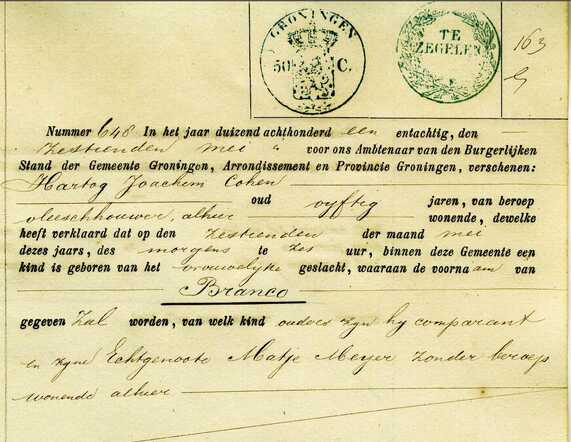 GRONINGEN
50 C.
TE
ZEGELEN
163
Nummer 648 In het jaar duizend achthonderd een entachtig, den
zestienden mei " voor ons Ambtenaar van den Burgerlijken
Stand der Gemeente Groningen, Arrondissement en Provincie Groningen, verschenen:
Hartog Joachim Cohen
oud vyftig jaren, van beroep
vleeschhouwer, alhier wonende, dewelke
heeft verklaard dat op den zestienden der maand mei
dezes jaars, des morgens te zes uur, binnen deze Gemeente een
kind is geboren van het vrouwelyke geslacht, waaraan de voornaam van
Branco
gegeven zal worden, van welk kind ouders zyn hy comparant
en zyne Echtgenoote Matje Meyer zonder beroep
wonende alhier